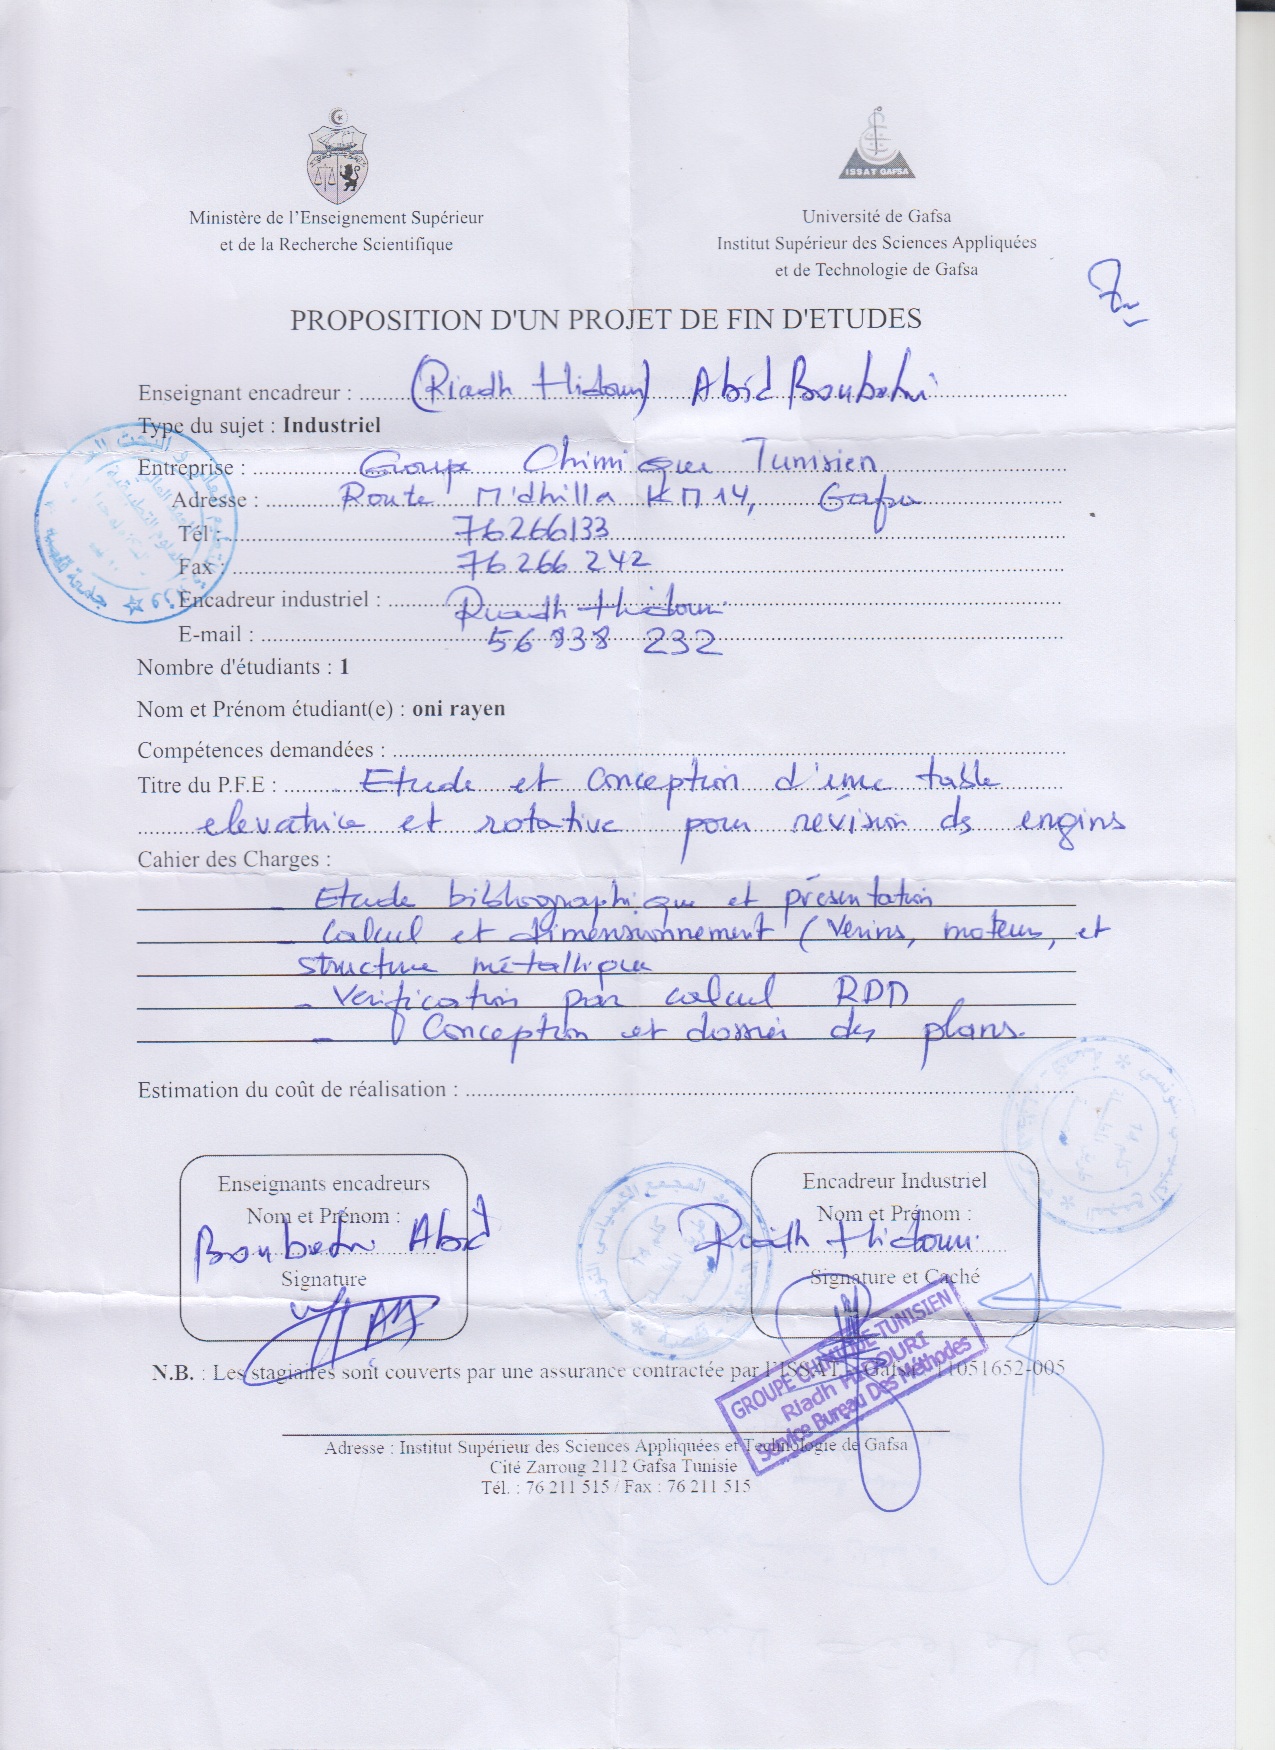 ISSAT GAFSA
Ministère de l'Enseignement Supérieur
et de la Recherche Scientifique
Université de Gafsa
Institut Supérieur des Sciences Appliquées
et de Technologie de Gafsa
PROPOSITION D'UN PROJET DE FIN D'ETUDES
Enseignant encadreur : (Riadh Hidouri) Abid Boubakri
Type du sujet : Industriel
Entreprise : Groupe Chimique Tunisien
Adresse : Route M'dhilla KM 14, Gafsa
Tél : 76266133
Fax : 76 266 242
Encadreur industriel : Riadh Hidouri
E-mail : 56 938 232
Nombre d'étudiants : 1
Nom et Prénom étudiant(e) : oni rayen
Compétences demandées :
Titre du P.F.E : Etude et conception d'une table
elevatrice et rotative pour révision ds engins
Cahier des Charges :
- Etude bibliographique et présentation
- Calcul et dimensionnement (Verins, moteur, et
structure métallique
- Verification par calcul RDD
- Conception et dossier des plans.
Estimation du coût de réalisation :
Enseignants encadreurs
Nom et Prénom :
Boubakri Abid
Signature
Encadreur Industriel
Nom et Prénom :
Riadh Hidouri
Signature et Caché
GROUPE CHIMIQUE TUNISIEN
Riadh HIDOURI
Service Bureau Des Méthodes
N.B. : Les stagiaires sont couverts par une assurance contractée par l'ISSAT Gafsa 11051652-005
Adresse : Institut Supérieur des Sciences Appliquées et Technologie de Gafsa
Cité Zarroug 2112 Gafsa Tunisie
Tél. : 76 211 515 / Fax : 76 211 515